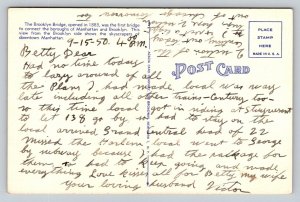 The Brooklyn Bridge, opened in 1883, was the first bridge
to connect the boroughs of Manhattan and Brooklyn. This
view from the Brooklyn side shows the skyscrapers of
downtown Manhattan.
POST CARD
PLACE
STAMP
HERE
MADE IN U.S.A.
9-15-50 4 P.M.
Betty Dear
Had no time today
to lazy around of all
the Plans I had made local was way
late including all other trains - Century too
so this time local got in siding at
to let 138 go by had to stay on the
local arrived Grand Central had of 22
missed the Harlem local went to George
by subway because I had the package for
them so had to keep going and made
everything Love kisses all for Betty my wife
Your loving husband Victor